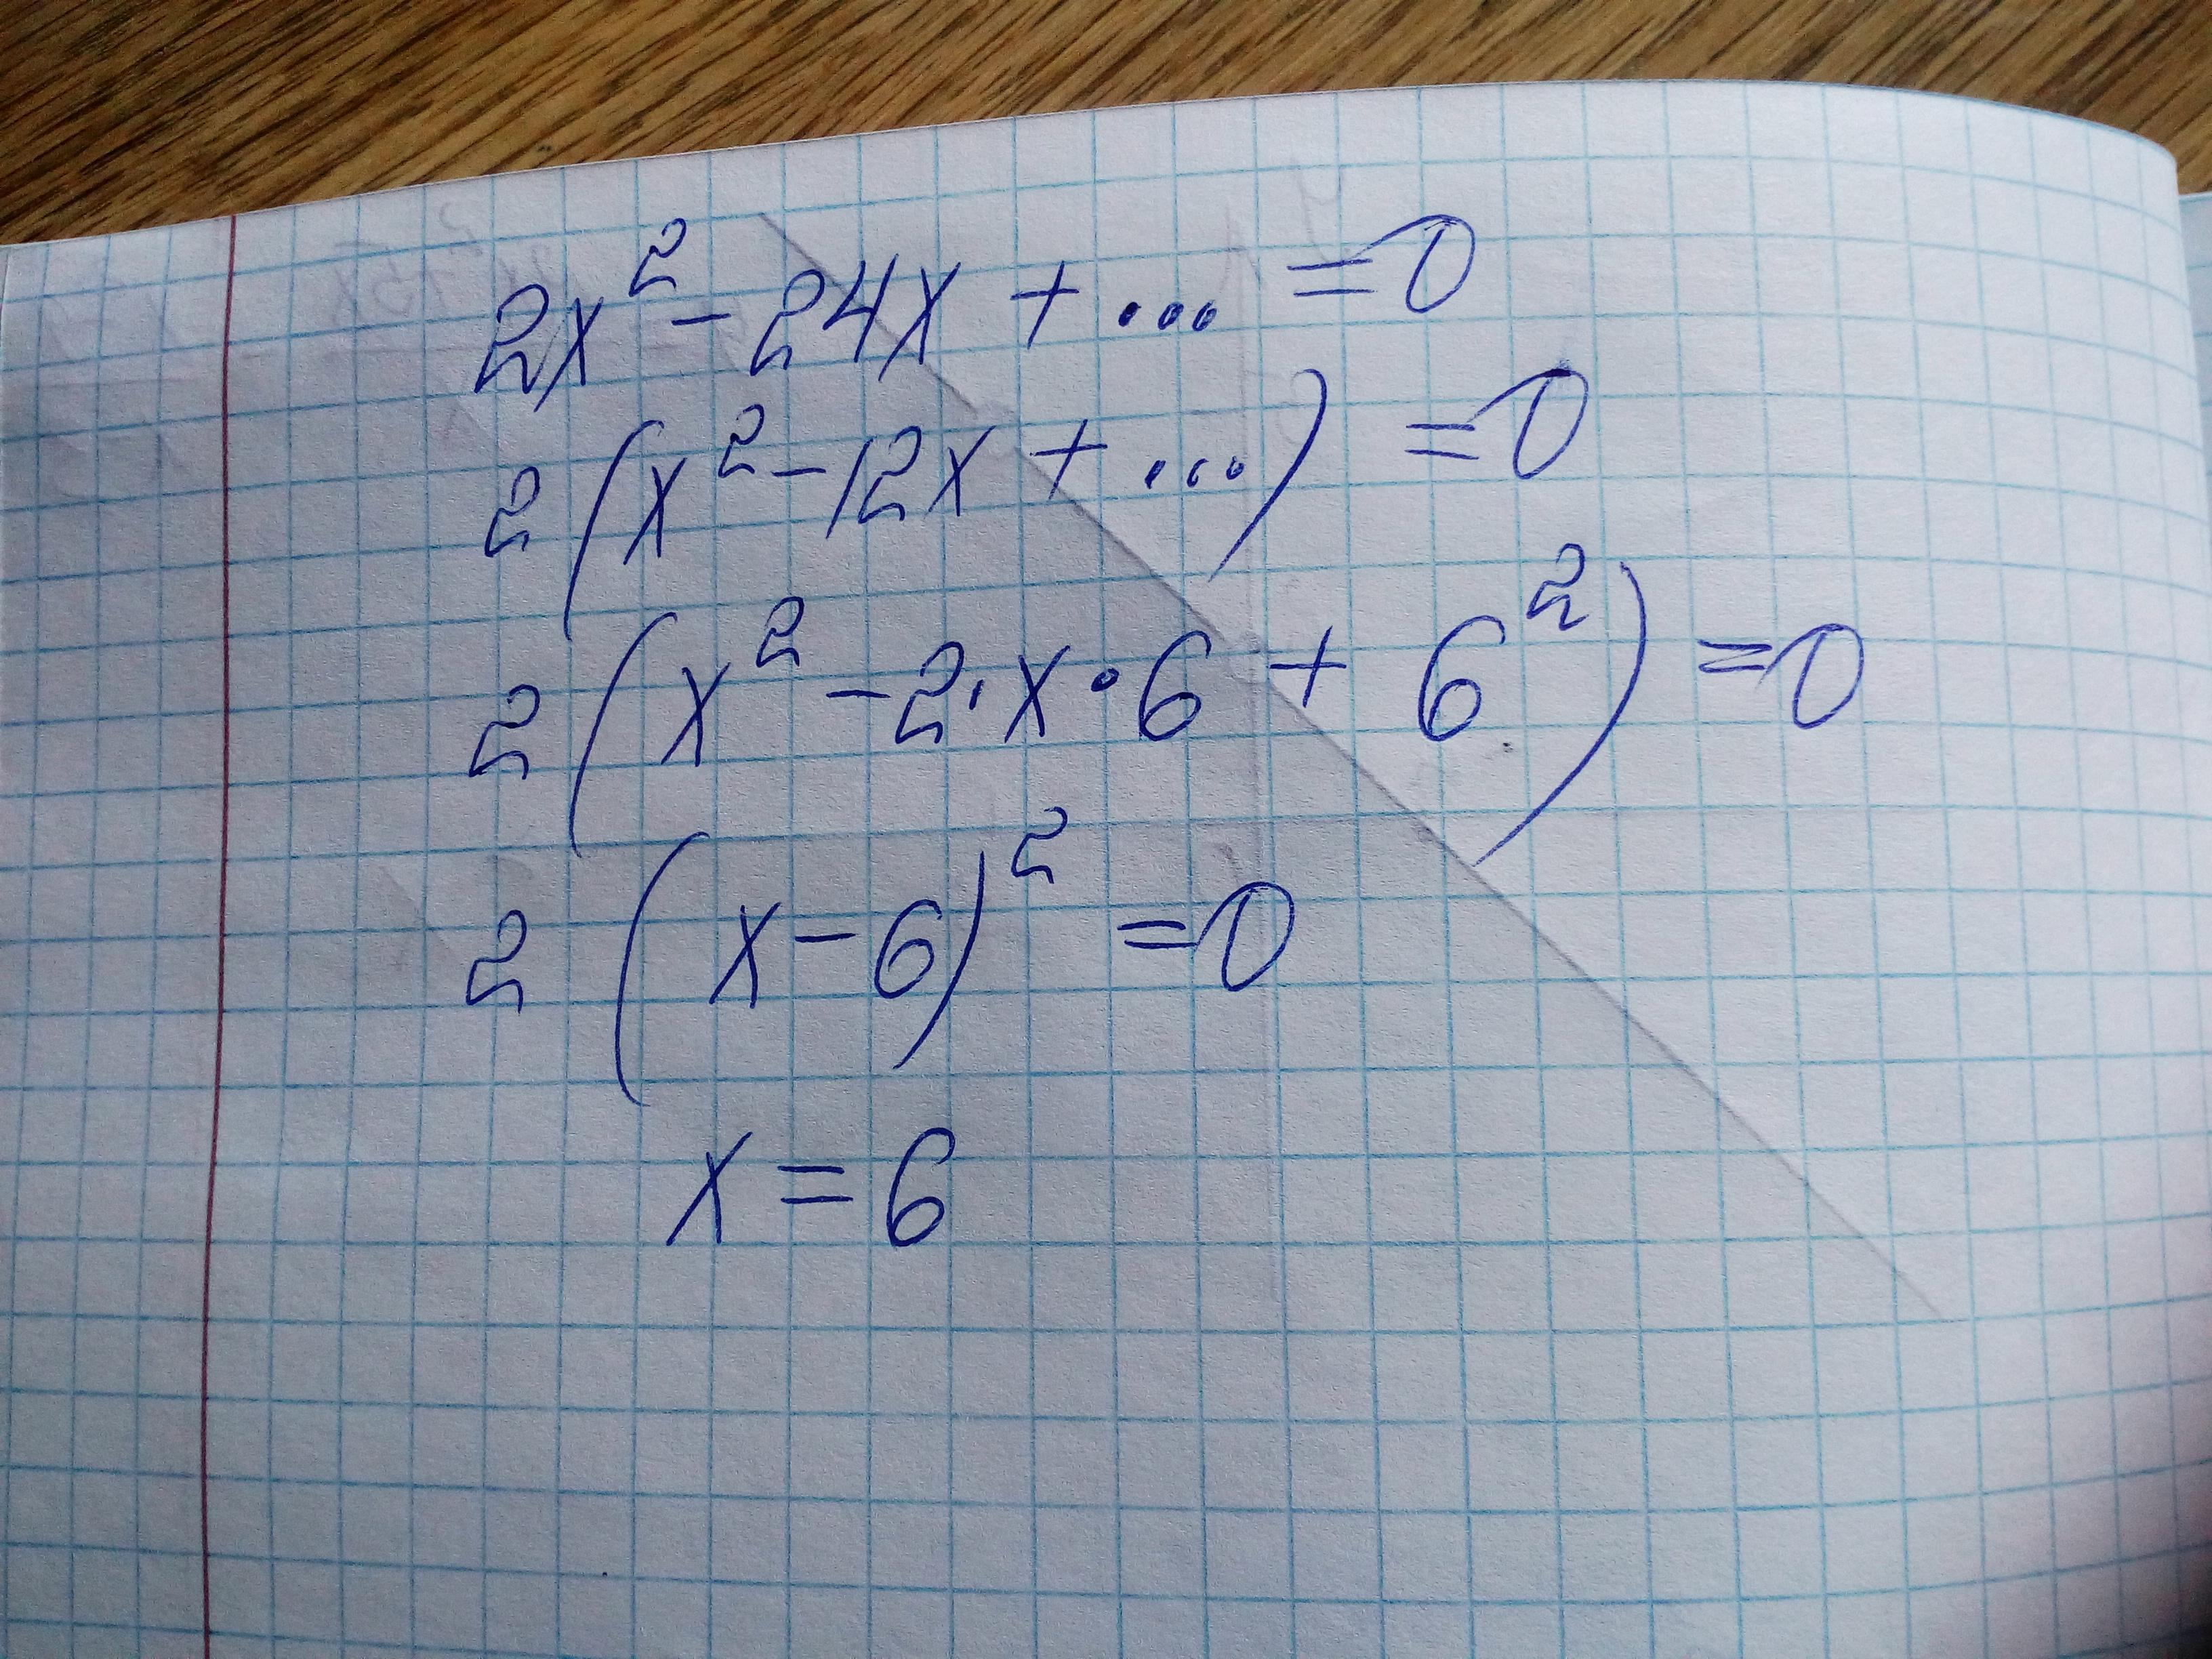 2x² - 24x + ... = 0
2(x² - 12x + ...) = 0
2(x² - 2·x·6 + 6²) = 0
2(x - 6)² = 0
x = 6